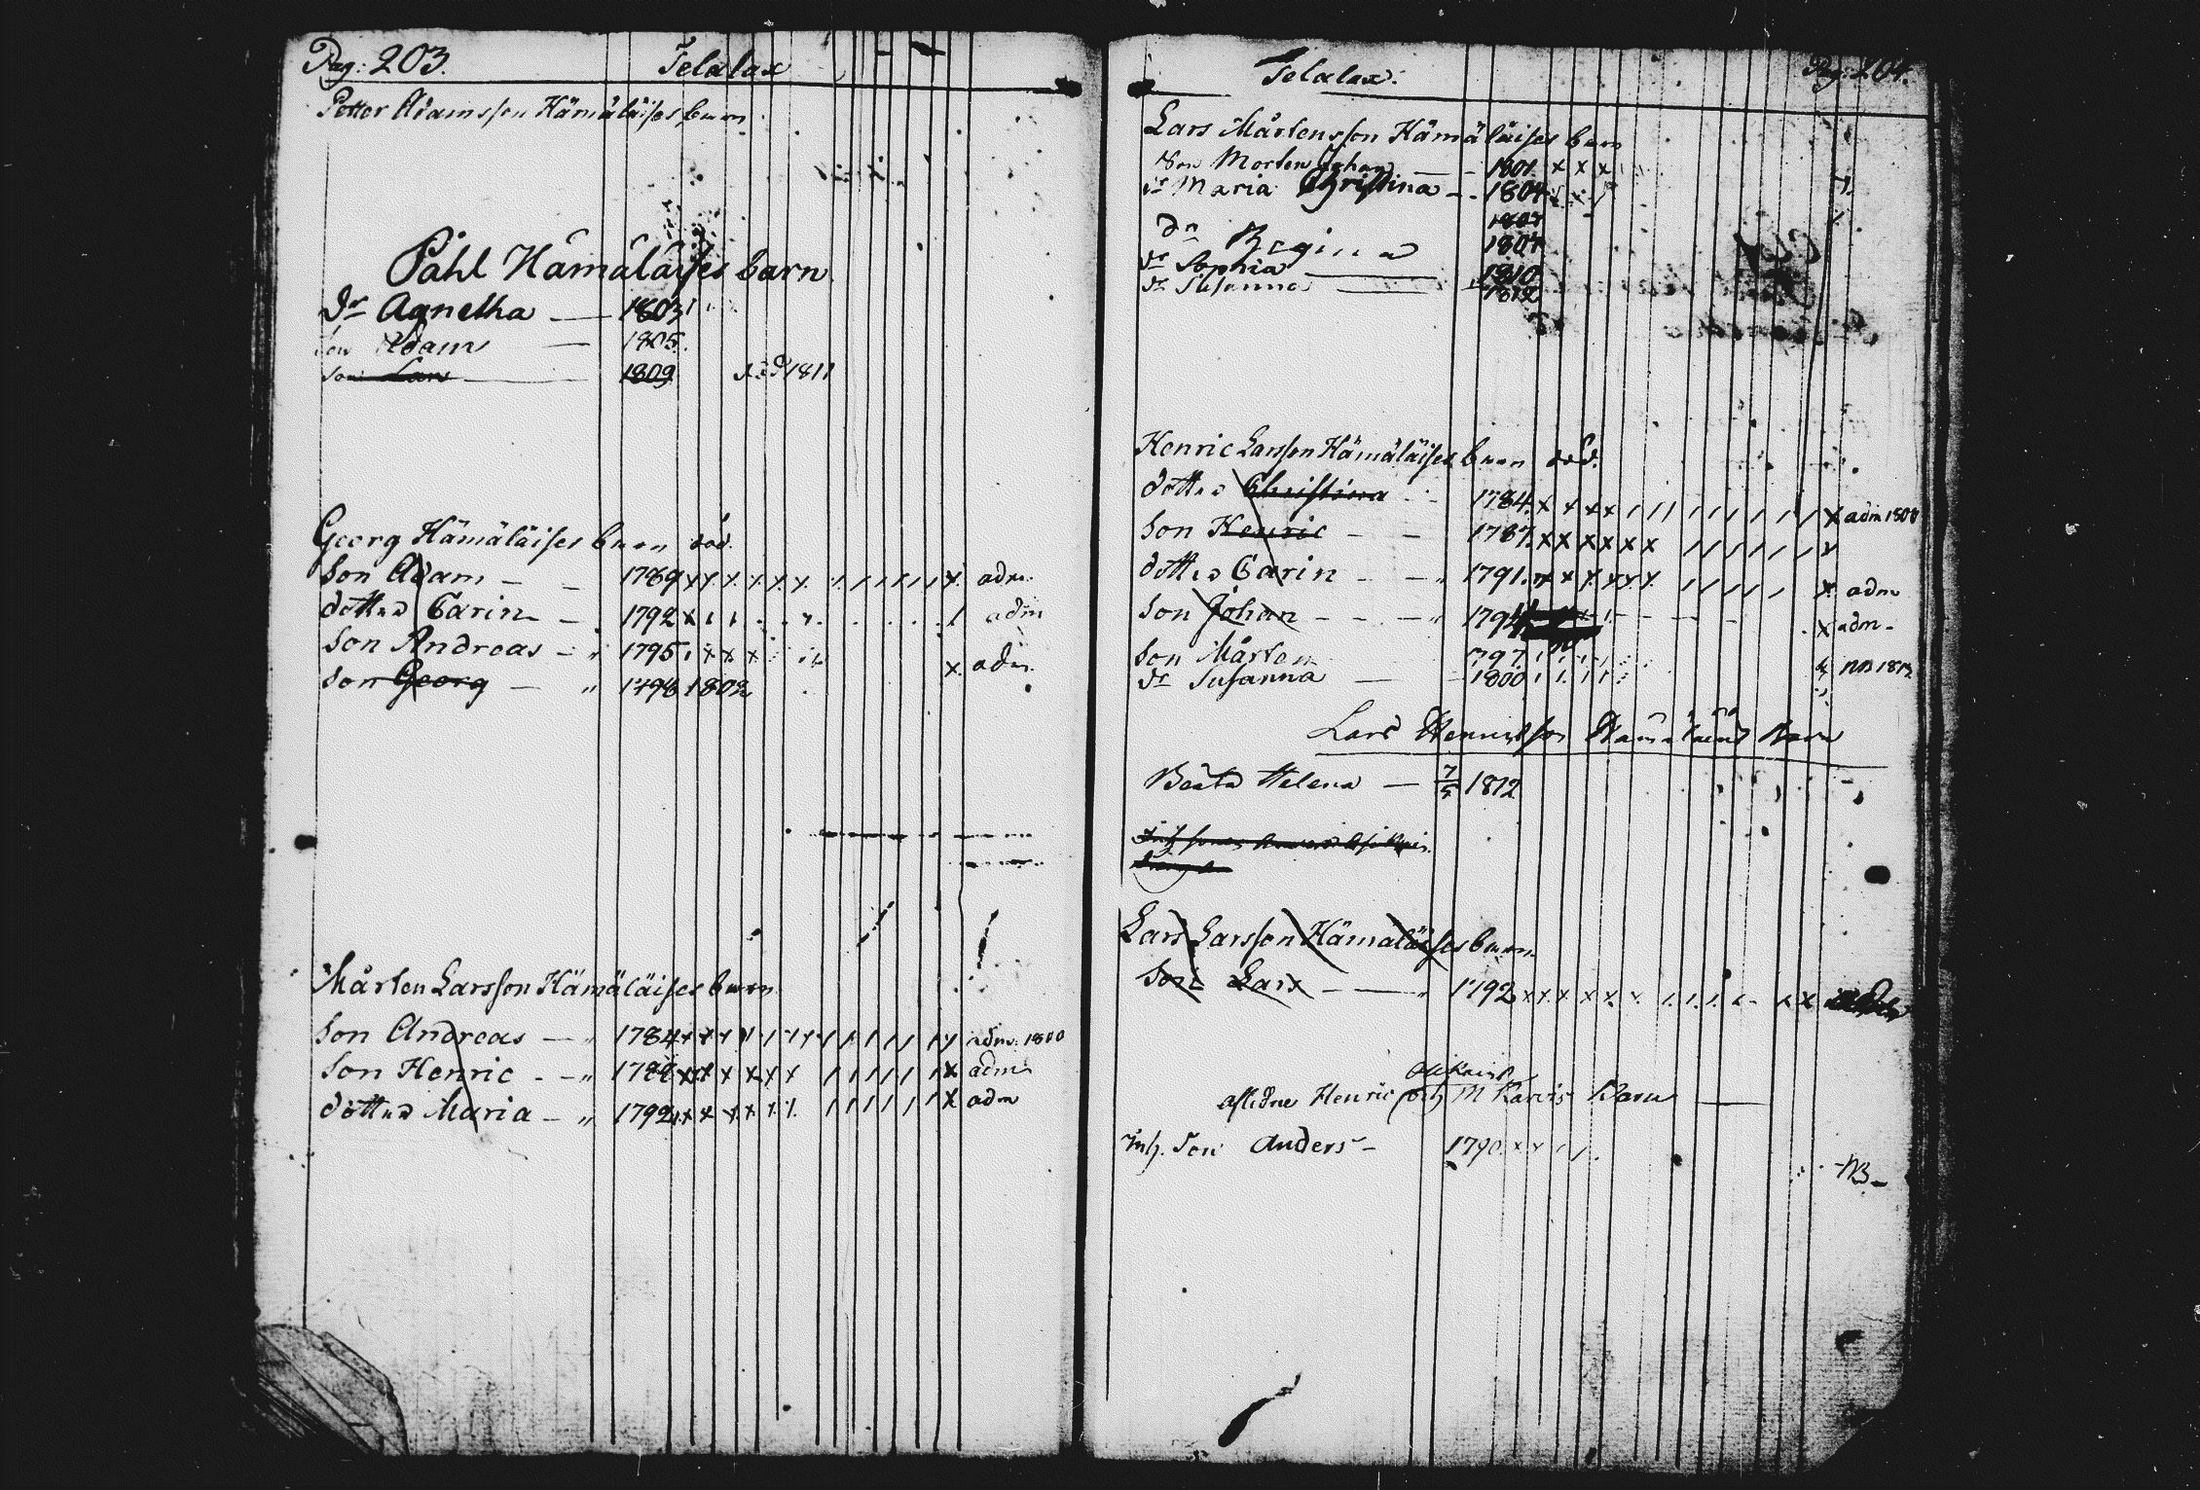 Pag: 203. Telalax
Petter Adamsson Hämäläises barn
Påhl Hämäläises barn
dr Agnetha — 1803
son Adam — 1805.
son Lars — 1809 död 1811
Georg Hämäläises barn död.
Son Adam — 1789 x x x x x x x adm.
dotter Carin — 1792 x adm
Son Andreas — " 1795 x x x x adm.
son Georg — " 1798 1802
Mårten Larsson Hämäläises barn
Son Andreas — " 1784 adm. 1800
Son Henric — " x x x x x x x adm
dotter Maria — " 1792 x x x x x x x adm
Telalax. Pag: 204.
Lars Mårtensson Hämäläises barn
Son Morten Johan — 1801 x x x
dr Maria Christina — 1804
1807
dr Regina 1807
dr Sophia — 1810
dr Susanna — 1812
Henric Larsson Hämäläises barn död.
dotter Christina 1784. x x x x x adm 1800
Son Henric — 1787. x x x x x x
dotter Carin — " 1791. x x x x x x adm
Son Johan — " 1794 x adm.
Son Mårten 1797. NB 1812
dr Susanna — 1800
Lars Henricsson Hämäläises Barn
Beata Helena — 1812
Lars Larsson Hämäläises barn
Son Lars — " 1792 x x x x x x x x x
aflidne Henric och M Karins Barn
Inh. Son Anders — 1790. x x NB —